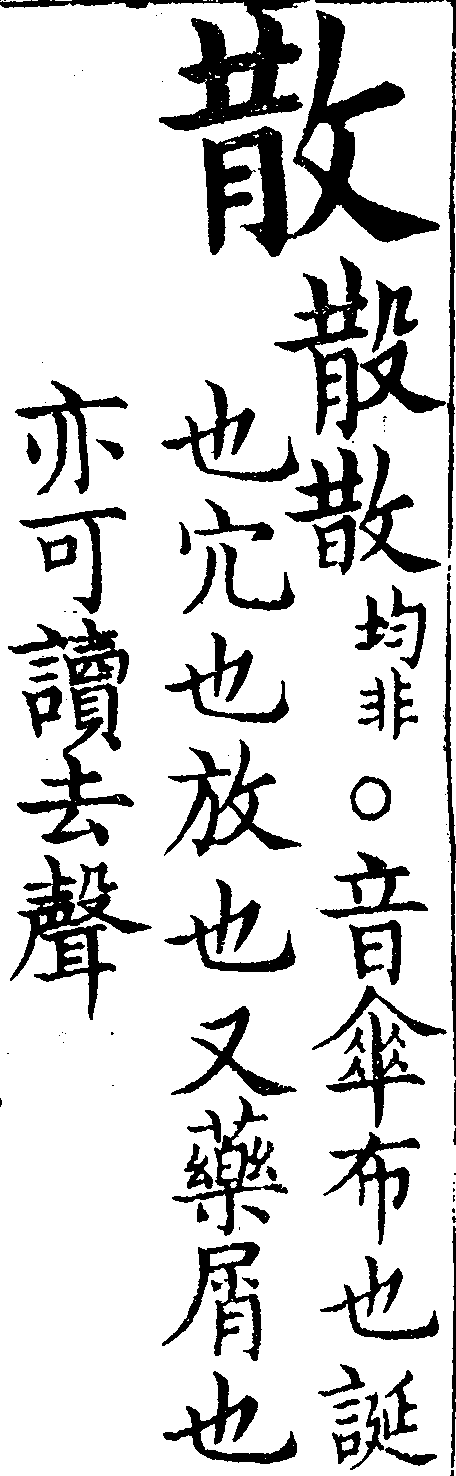 散
㪚散均非○音傘布也誕
也宂也放也又藥屑也
亦可讀去聲